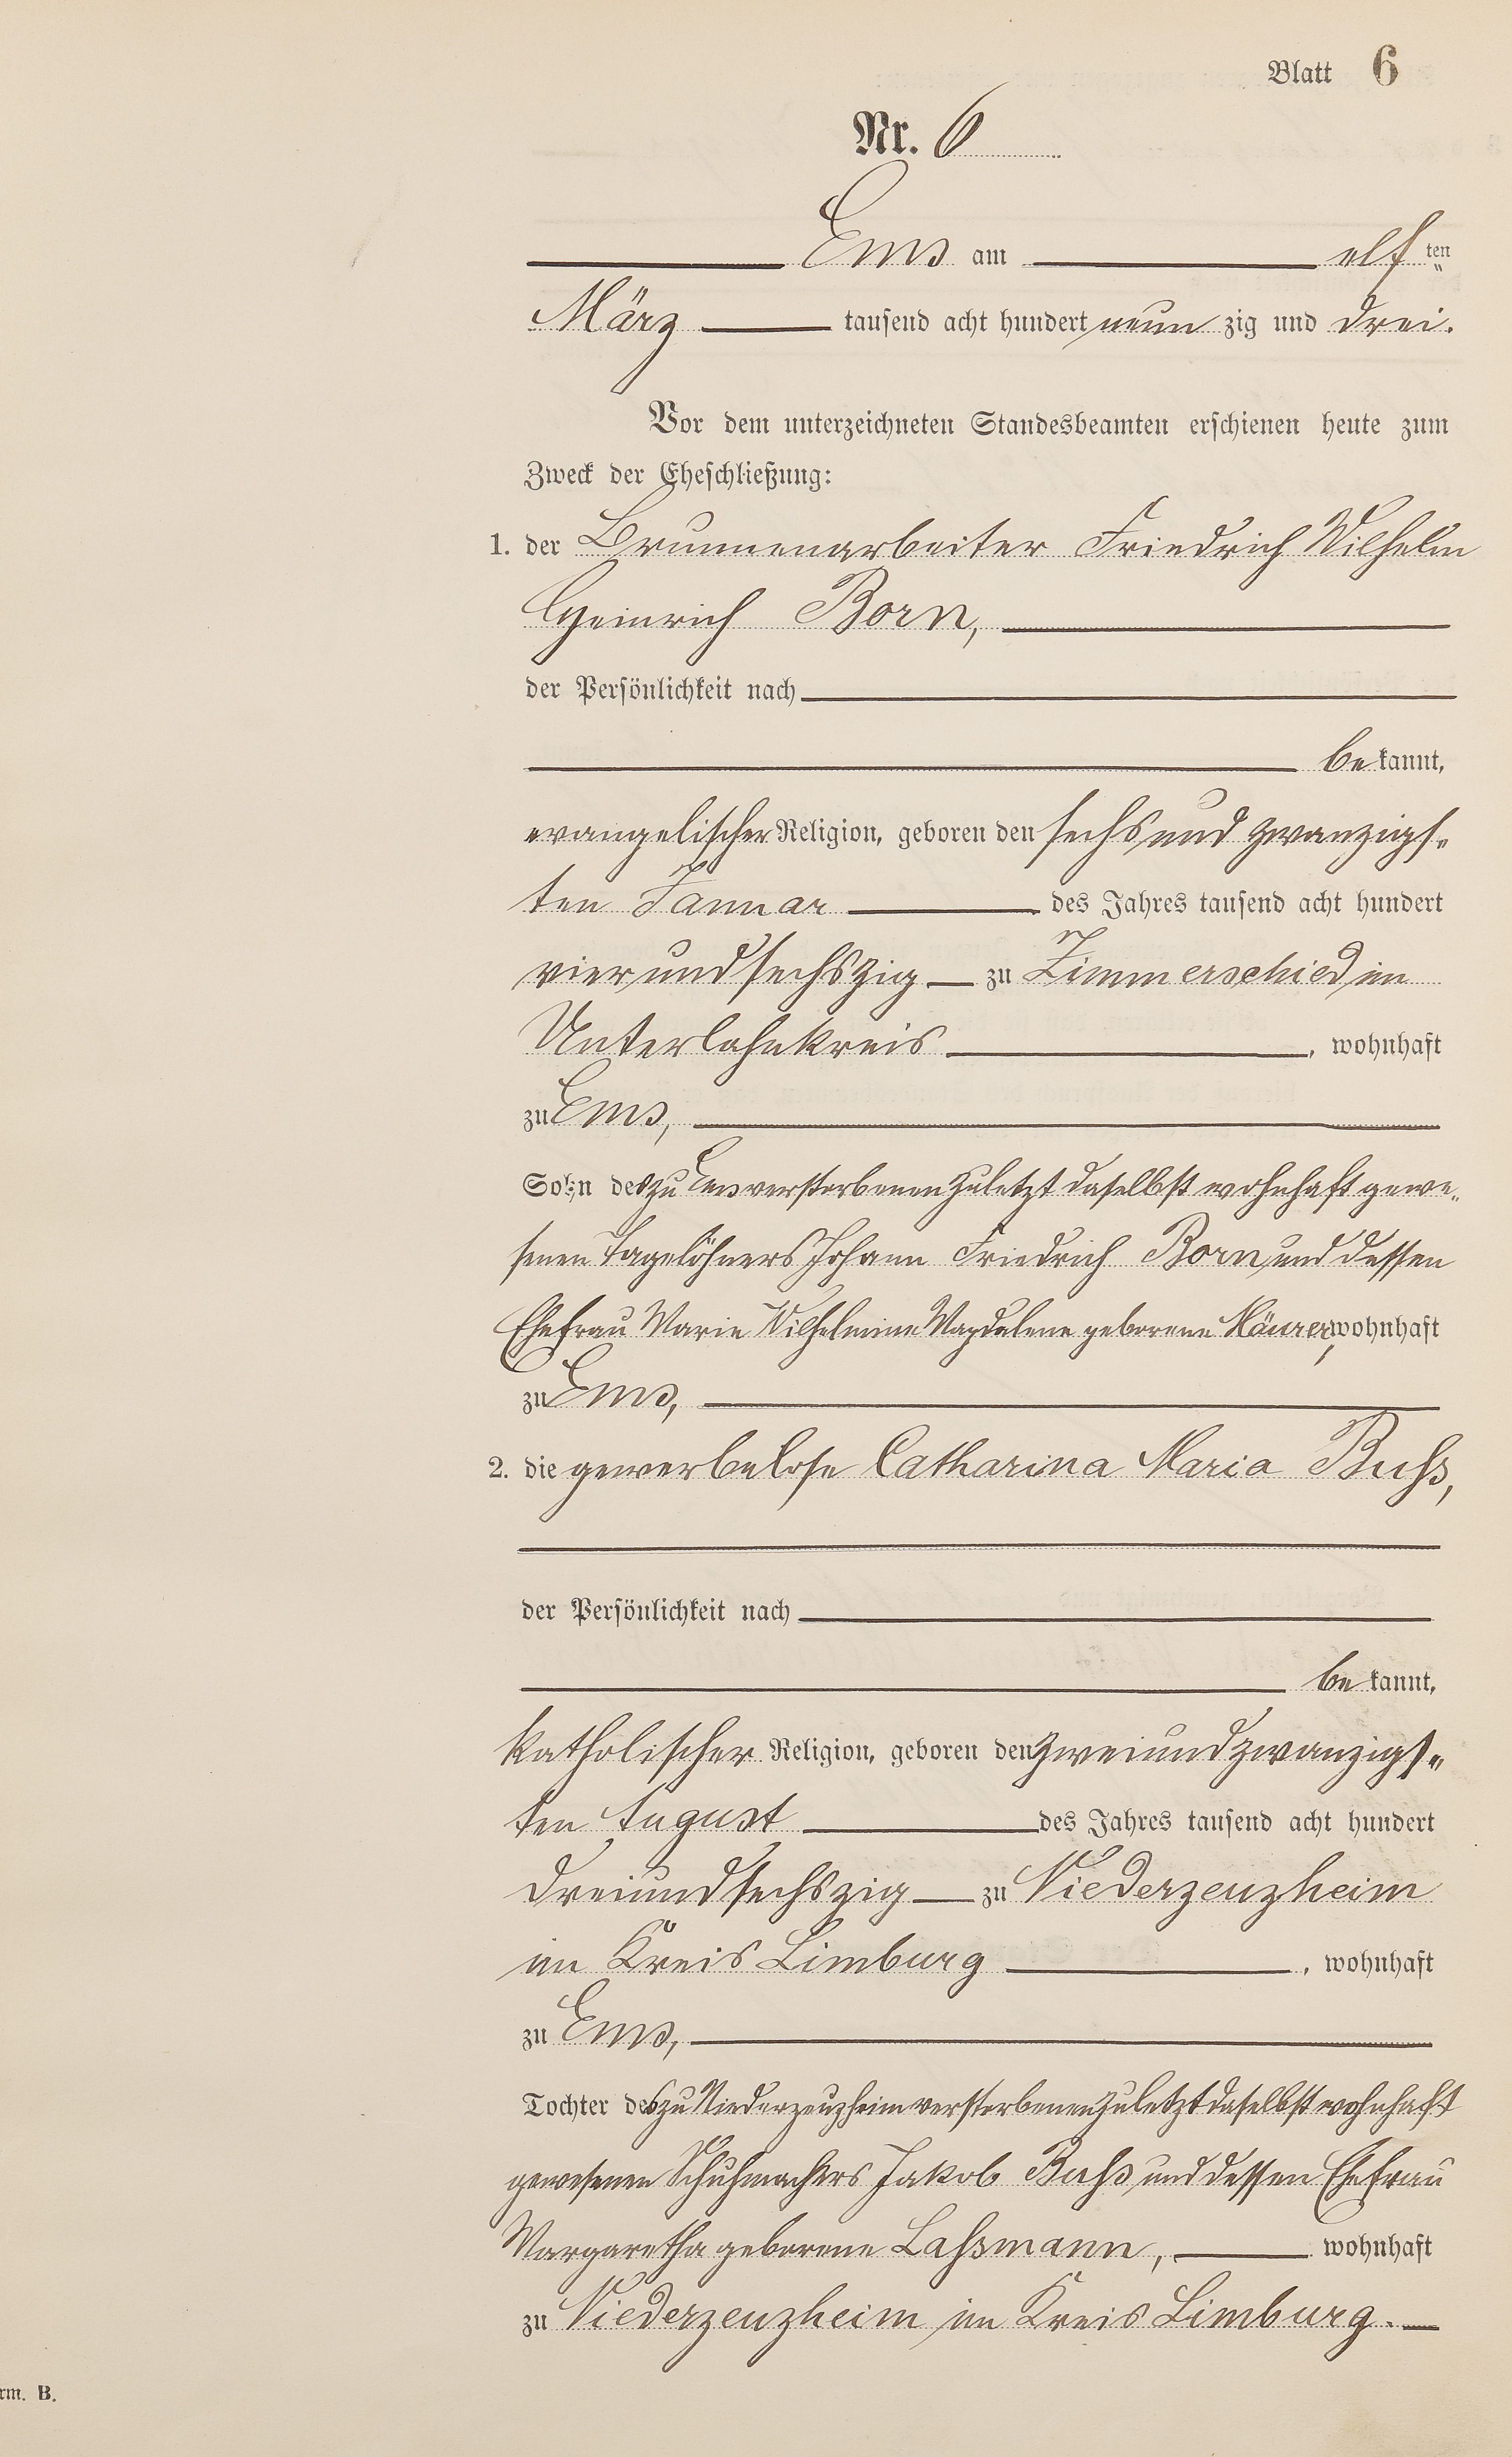 Blatt 6
Nr. 6
Ems am elf ten
März tausend acht hundert neun zig und drei.
Vor dem unterzeichneten Standesbeamten erschienen heute zum
Zweck der Eheschließung:
1. der Brunnenarbeiter Friedrich Wilhelm
Heinrich Born,
der Persönlichkeit nach
be kannt,
evangelischer Religion, geboren den sechs und zwanzigs-
ten Januar des Jahres tausend acht hundert
vier und sechszig zu Zimmerschied im
Unterlahnkreis , wohnhaft
zu Ems,
Sohn des zu Ems verstorbenen zuletzt daselbst wohnhaft gewe-
senen Tagelöhners Johann Friedrich Born und dessen
Ehefrau Marie Wilhelmine Magdalene geborene Mäurer, wohnhaft
zu Ems,
2. die gewerbelose Catharina Maria Buhs,
der Persönlichkeit nach
be kannt,
katholischer Religion, geboren den zweiundzwanzigs-
ten August des Jahres tausend acht hundert
dreiundsechszig zu Niederzeuzheim
im Kreis Limburg , wohnhaft
zu Ems,
Tochter des zu Niederzeuzheim verstorbenen zuletzt daselbst wohnhaft
gewesenen Schuhmachers Jakob Buhs und dessen Ehefrau
Margaretha geborene Lahsmann, wohnhaft
zu Niederzeuzheim im Kreis Limburg.
rm. B.